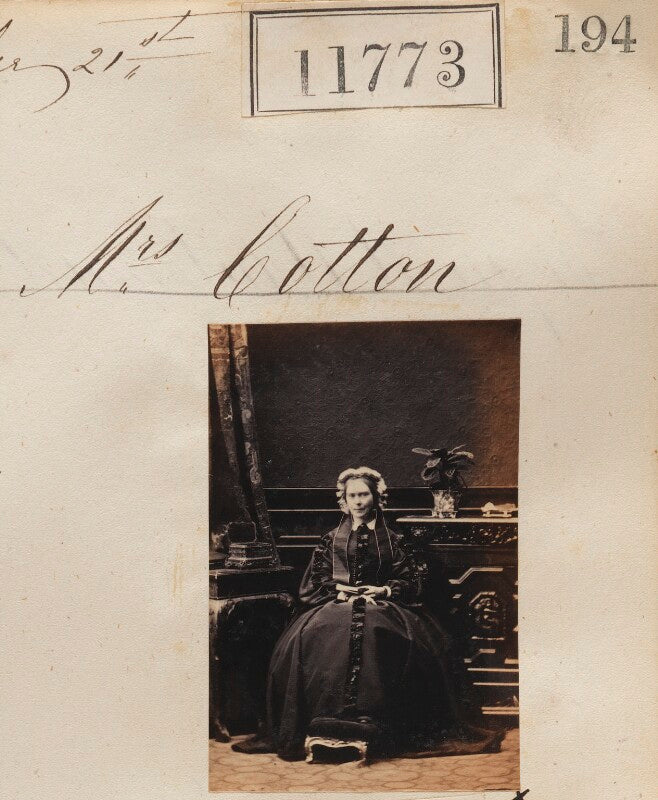 21st
11773
194
Mrs Cotton